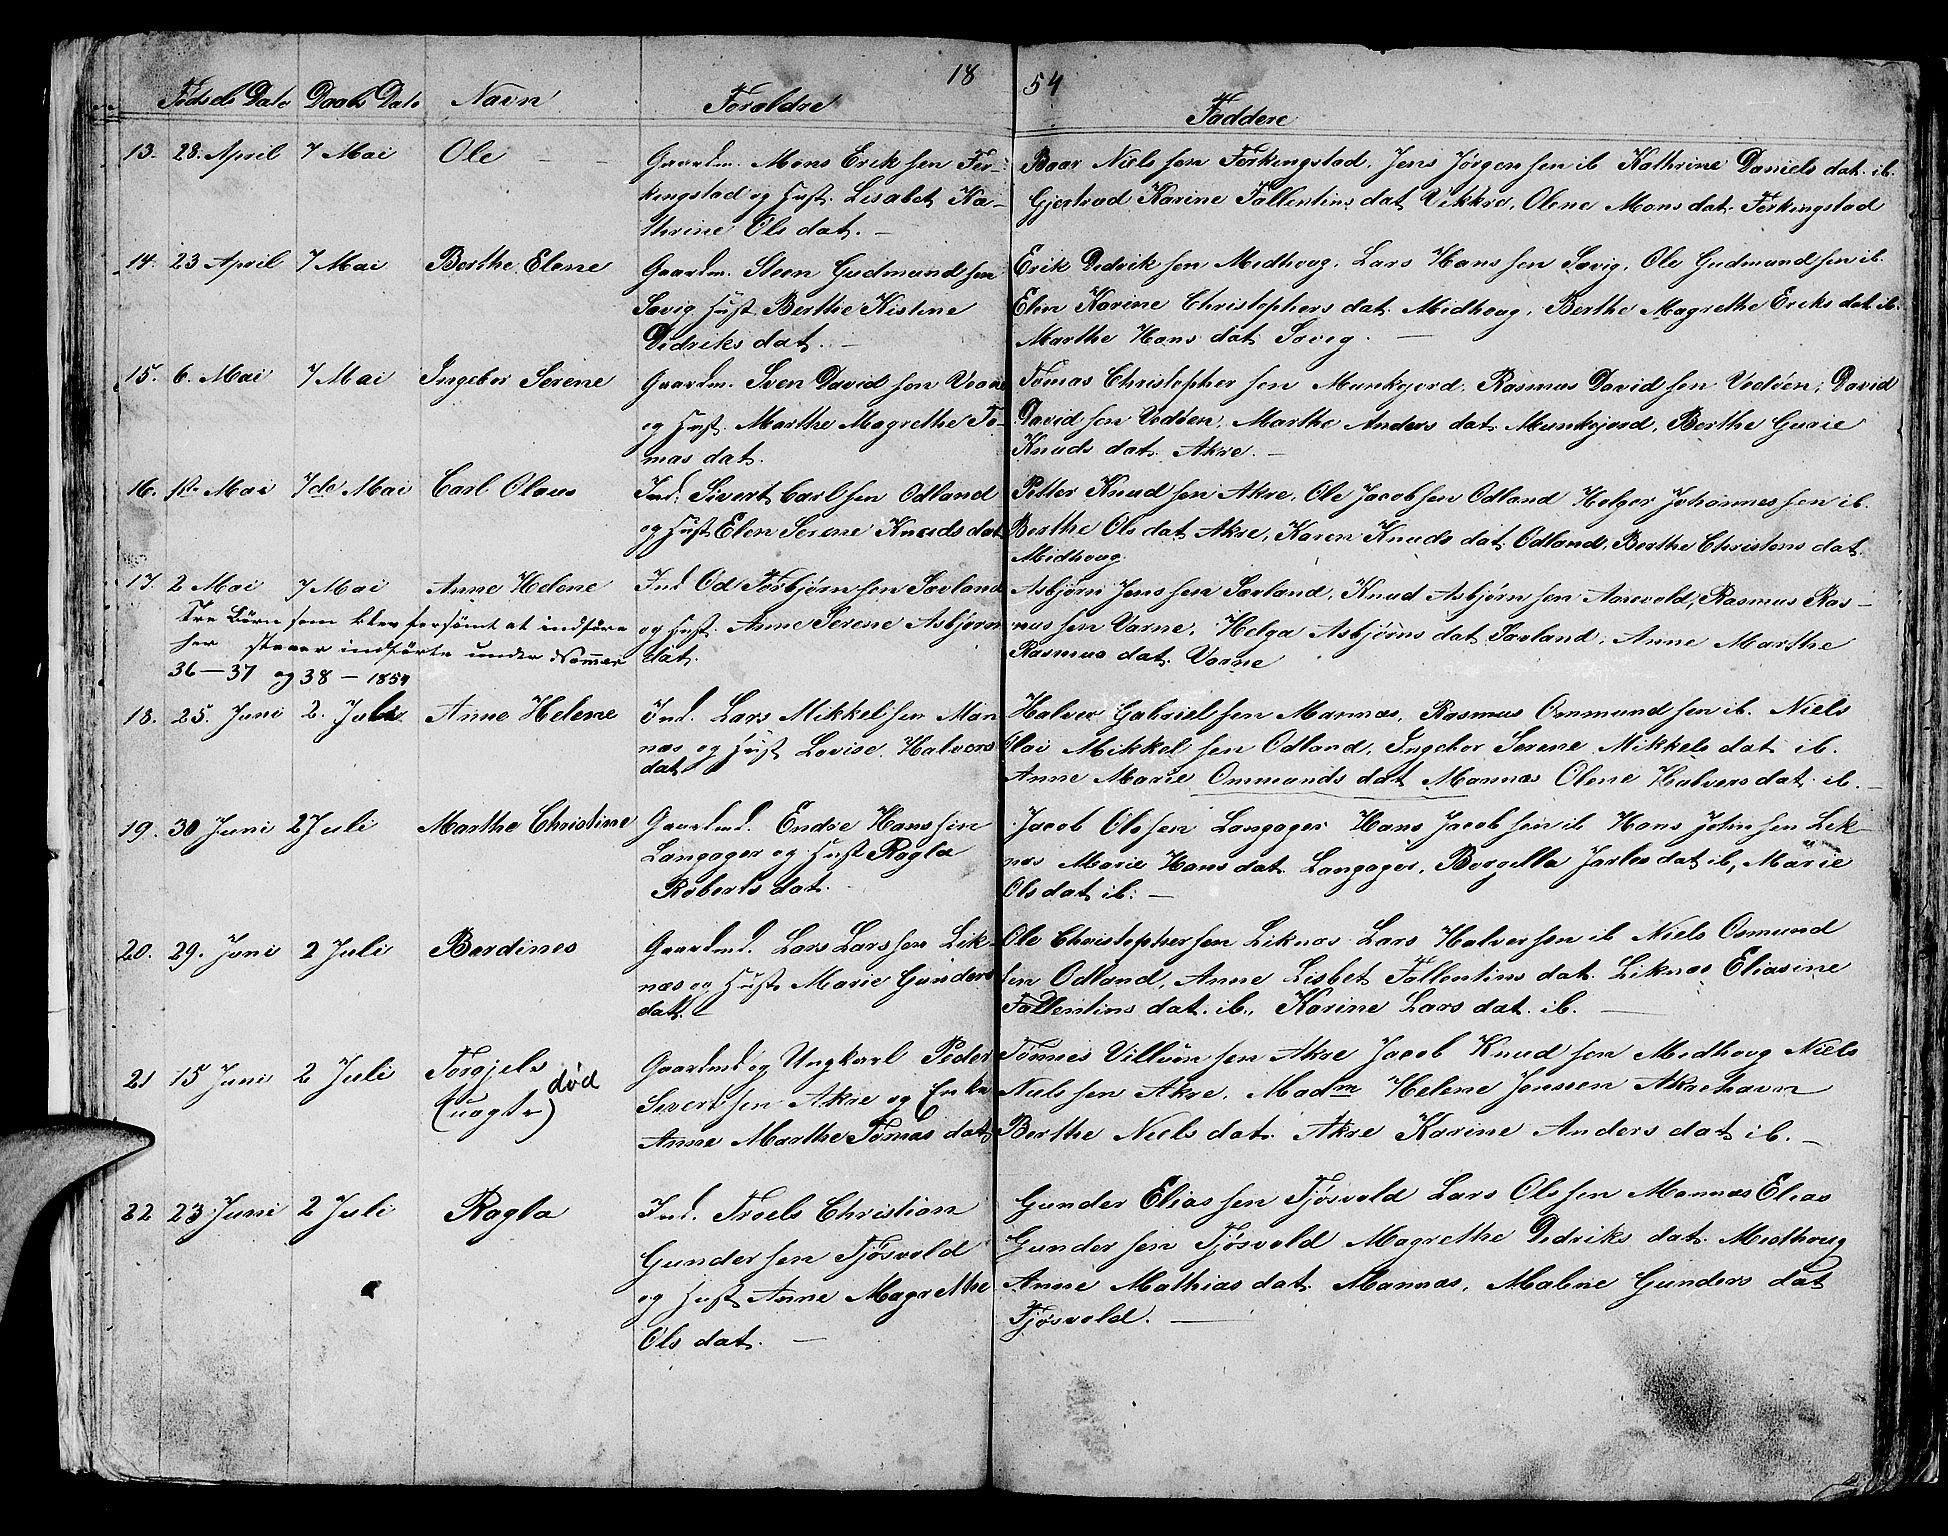 1854
Fødsels Dato Daabs Dato Navn Forældre Faddere
13. 28. April 7 Mai Ole
Gaardm. Mons Eriksen Fer-
kingstad og Hust. Lisabet Ka-
thrine Ols dat.
Baar Nielssen Ferkingstad, Jens Jørgensen ib Kathrine Daniels dat. ib.
Gjertrud Karine Fallentins dat Vikkre, Olene Mons dat. Ferkingstad
14. 23 April 7 Mai Berthe Elene
Gaardm. Steen Gudmundsen
Sævig Hust Berthe Kistine
Dedriks dat.
Erik Dedriksen Medhoug, Lars Hanssen Sævig, Ole Gudmundsen ib.
Elen Karine Christophers dat. Midhoug, Berthe Magrethe Eriks dat ib.
Marthe Hans dat Sævig.
15. 6. Mai 7 Mai Ingebor Serene
Gaardm. Sven Davidsen
og Hust. Marthe Magrethe To-
mas dat.
Tomas Christophersen Munkejord, Rasmus Davidsen Vedøen, David
Davidsen Vedøen, Marthe Anders dat. Munkejord, Berthe Gurie
Knuds dat. Akre.
16. 1ste Mai 7de Mai Carl Olaus
Ind. Sivert Carlsen Odland
og Hust Elen Serene Knuds dat
Petter Knudsen Akre, Ole Jacobsen Odland Helger Johannessen ib.
Berthe Ols dat Akre, Karen Knuds dat. Odland, Berthe Christens dat.
Midhoug
17. 2 Mai 7 Mai Anne Helene
Ind Od Torbjørnsen Sævland
og Hust. Anne Serene Asbjørn
dat.
Asbjørn Jenssen Sævland, Knud Asbjørnsen Aarevold, Rasmus Ras-
mussen Varne, Helga Asbjørns dat Sævland, Anne Marthe
Rasmus dat. Varne
Tre Børn som blev forsömt at indføre
her staaer indførte under Nommer
36-37 og 38 - 1854
18. 25. Juni 2. Juli Anne Helene
Ind. Lars Mikkelsen Man
næs og Hust Lovise Halvors
dat
Halvor Gabrielsen Mannæs, Rasmus Ommundsen ib. Niels
Olai Mikkelsen Odland, Ingebor Serene Mikkels dat ib.
Anne Marie Ommunds dat Mannæs Olene Halvers dat. ib.
19. 30 Juni 2 Juli Marthe Christine
Gaardmd. Endre Hanssen
Langager og Hust Ragla
Roberts dat.
Jacob Olssen Langager Hans Jacobsen ib Hans Johnsen Lik-
næs Marie Hans dat. Langager, Bergella Jarles dat ib, Marie
Ols dat ib.
20. 29. Juni 2 Juli Berdines
Gaardmd. Lars Larssen Lik-
næs og Hust. Marie Gunders
datt.
Ole Christophersen Liknæs Lars Halversen ib Niels Osmund
sen Odland, Anne Lisbet Fallentins dat. Liknæs Eliasine
Fallentins dat. ib., Karine Lars dat. ib.
21 15 Juni 2 Juli Torgjels
(uægte) død
Gaardmd og Ungkarl Peder
Sivertsen Akre og Enke
Anne Marthe Tomas dat
Tønnes Villumsen Akre Jacob Knudsen Medhoug Niels
Nielssen Akre, Madm Helene Jenssen Akrehavn
Berthe Niels dat. Akre Karine Anders dat ib.
22 23 Juni 2 Juli Ragla
Ind. Troels Christian
Gundersen Tjøsvold
og Hust Anne Magrethe
Ols dat.
Gunder Eliassen Tjøsvold Lars Olssen Mannæs Elias
Gundersen Tjøsvold Magrethe Dedriks dat. Medhoug
Anne Mathias dat. Mannæs, Malene Gunders dat
Tjøsvold.